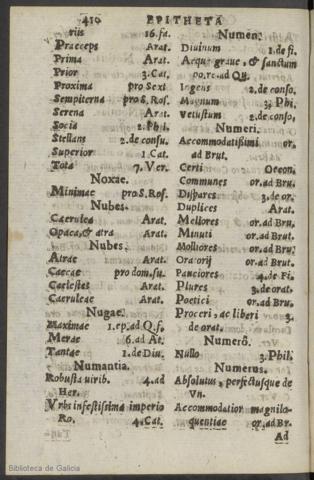 410 EPITHETA
riis 16. fa.
Praeceps Arat.
Prima Arat.
Prior 3. Cat.
Proxima pro Sext
Sempiterna pro S. Ros.
Serena Arat.
Socia 2. Phil.
Stellans 2. de consu.
Superior 1. Cat.
Tota 7. Ver.
Noxae.
Minimae pro S. Ros.
Nubes.
Caerulea Arat.
Opaca, & atra Arat.
Nubes.
Atrae Arat.
Caecae pro dom. su.
Caelestes Arat.
Caeruleae Arat.
Nugae.
Maximae 1. ep. ad Q. f.
Merae 6. ad At.
Tantae 1. de Diu.
Numantia.
Robusta uirib. 4. ad
Her.
Vrbs infestissima imperio
Ro. 4. Cat.
Numen.
Diuinum 1. de fi.
Aeque graue, & sanctum
po. re. ad Qu.
Ingens 2. de conso.
Magnum 3. Phi.
Vetustum 2. de conso,
Numeri.
Accommodatissimi or.
ad Brut.
Certi Oecon.
Communes or. ad Bru.
Dispares 3. de or.
Duplices Arat.
Meliores or. ad Bru.
Minuti or. ad Bru.
Molliores or. ad Bru.
Oratorij or. ad Brut.
Pauciores 4. de Fi.
Plures 3. de orat.
Poetici or. ad Bru.
Proceri, ac liberi 3.
de orat.
Numerô.
Nullo 3. Phil.
Numerus.
Absolutus, perfectusque de
Vn.
Accommodatior magnilo-
quentiae or. ad Br.
Ad
Biblioteca de Galicia